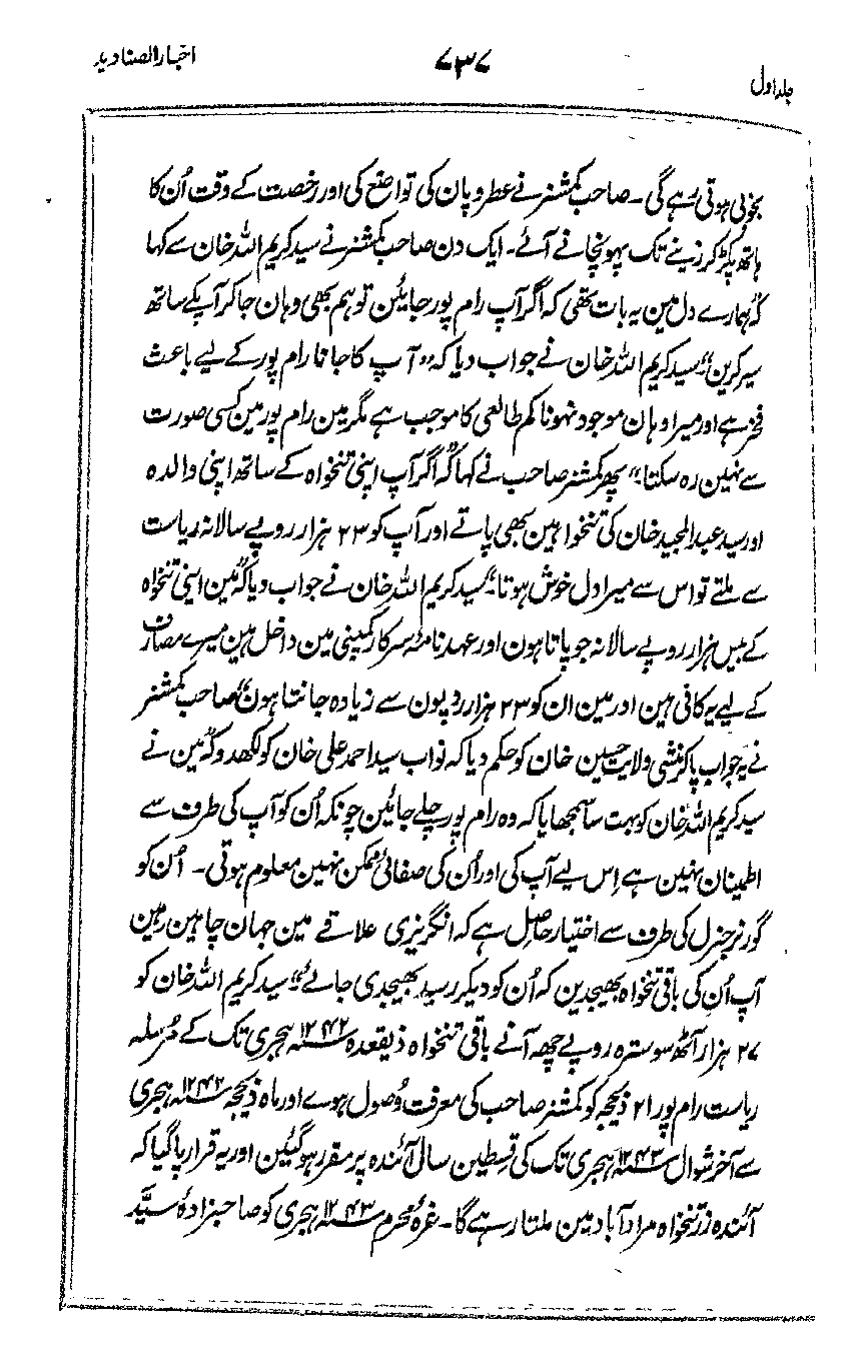 اخبار الصنادید
۷۳۷
جلد اول
بخوبی ہوتی رہے گی۔ صاحب کمشنر نے عطر و پان کی تواضع کی اور رخصت کے وقت اُن کا
ہاتھ پکڑ کر زینے تک پہونچانے آئے۔ ایک دن صاحب کمشنر نے سید کریم اللہ خان سے کہا
کہ "ہمارے دل مین یہ بات تھی کہ اگر آپ رام پور جایئن تو ہم بھی وہان جا کر آپ کے ساتھ
سیر کرین" سید کریم اللہ خان نے جواب دیا کہ "آپ کا جانا رام پور کے لیے باعث
فخر ہے اور میرا وہان موجود نہونا کم طالعی کا موجب ہے مگر مین رام پور مین کسی صورت
سے نہین رہ سکتا" پھر کمشنر صاحب نے کہا کہ "اگر آپ اپنی تنخواہ کے ساتھ اپنی والدہ
اور سید عبد المجید خان کی تنخواہین بھی پاتے اور آپ کو ۲۳ ہزار روپے سالانہ ریاست
سے ملتے تو اس سے میرا دل خوش ہوتا" سید کریم اللہ خان نے جواب دیا کہ "مین اپنی تنخواہ
کے بیس ہزار روپے سالانہ جو پاتا ہون اور عہد نامۂ سرکار کمپنی مین داخل ہین میرے مصارف
کے لیے یہ کافی ہین اور مین ان کو ۲۳ ہزار روپون سے زیادہ جانتا ہون" صاحب کمشنر
نے یہ جواب پا کر منشی ولایت حسین خان کو حکم دیا کہ نواب سید احمد علی خان کو لکھدو کہ "مین نے
سید کریم اللہ خان کو بہت سا سمجھایا کہ وہ رام پور چلے جائین چونکہ اُن کو آپ کی طرف سے
اطمینان نہین ہے اِس لیے آپ کی اور اُن کی صفائی ممکن نہین معلوم ہوتی۔ اُن کو
گورنر جنرل کی طرف سے اختیار حاصل ہے کہ انگریزی علاقے مین جہان چاہین رہین
آپ اُن کی باقی تنخواہ بھیجدین کہ اُن کو دیکر رسید بھیجدی جائے" سید کریم اللہ خان کو
۲۷ ہزار آٹھ سو سترہ روپے چھہ آنے باقی تنخواہ ذیقعدہ ۱۲۴۲؁ ہجری تک کے مُرسلہ
ریاست رام پور ۲۱ ذیحجہ کو کمشنر صاحب کی معرفت وُصول ہوے اور ماہ ذیحجہ ۱۲۴۲؁ ہجری
سے آخر شوال ۱۲۴۳؁ ہجری تک کی قسطین سال آئندہ پر مقرر ہو گیئن اور یہ قرار پا گیا کہ
آئندہ زر تنخواہ مراد آباد مین ملتا رہے گا۔ غرۂ محرم ۱۲۴۳؁ ہجری کو صاحبزادہ سیّد